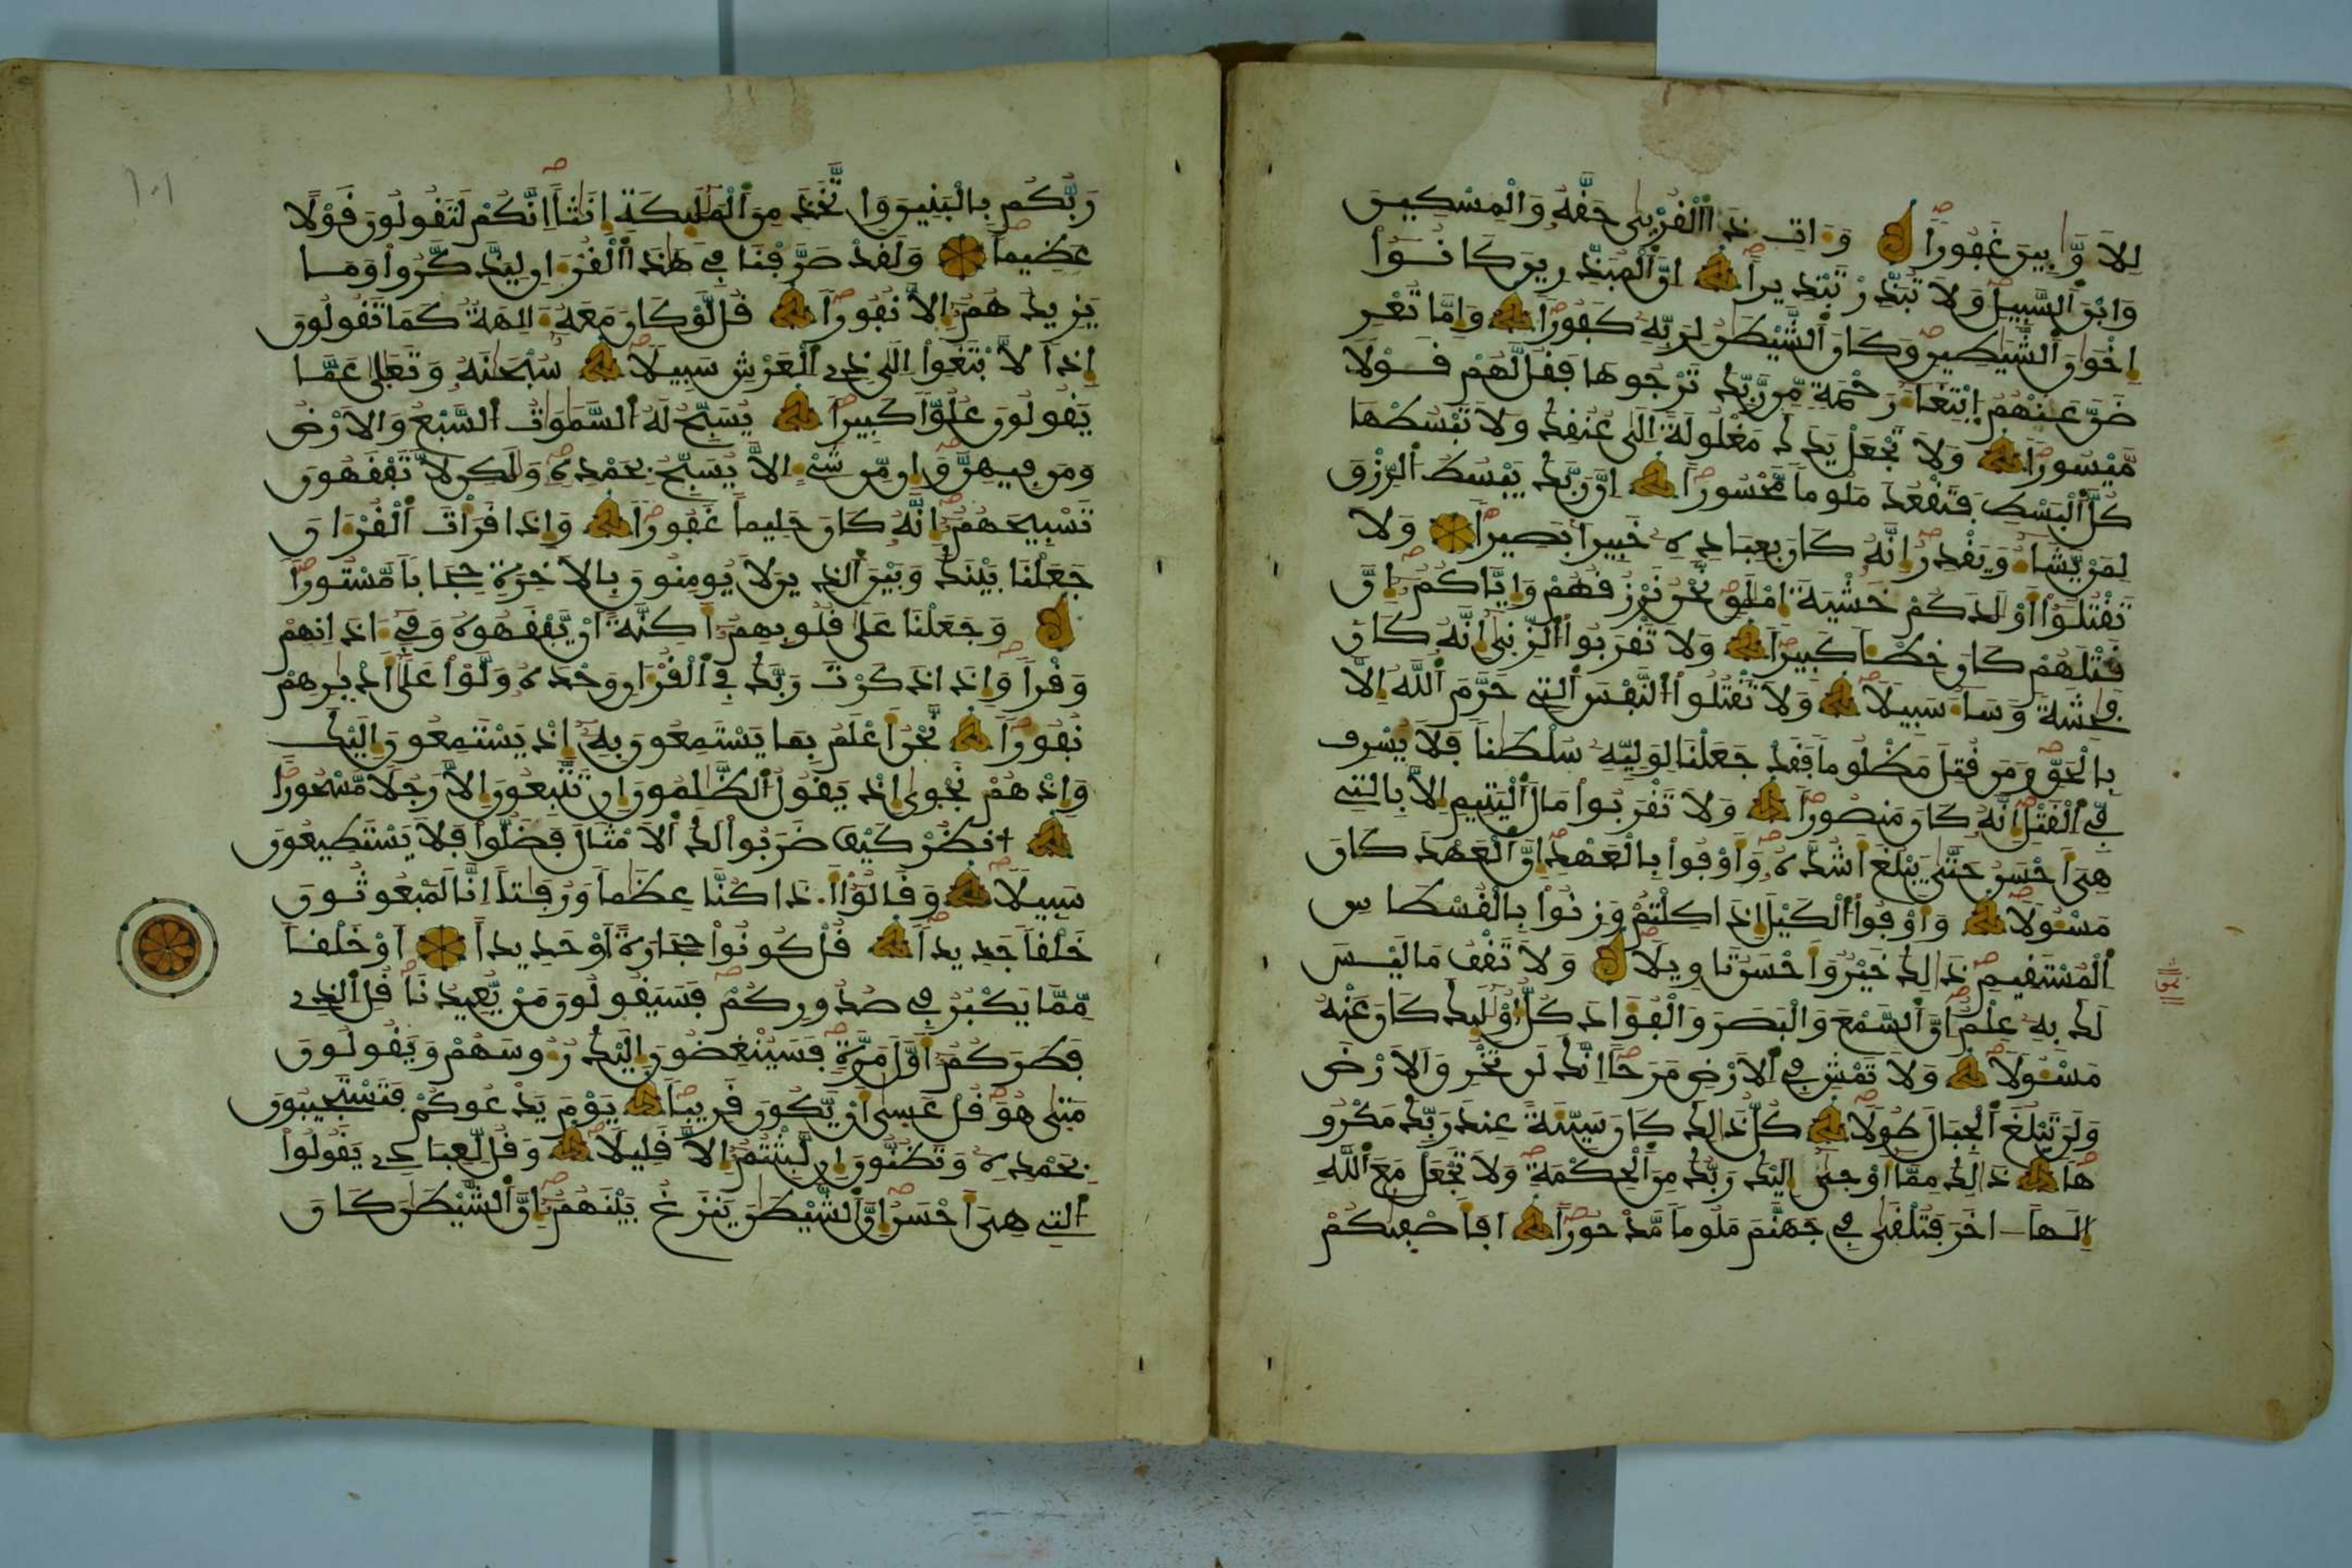 لِلاَوَّٰبِينَ غَفُورٗا وَءَاتِ ذَا اَ۬لْقُرْب۪ىٰ حَقَّهُۥ وَالْمِسْكِينَ
وَابْنَ اَ۬لسَّبِيلِ وَلَا تُبَذِّرْ تَبْذِيراً اِنَّ اَ۬لْمُبَذِّرِينَ كَانُوٓاْ
إِخْوَٰنَ اَ۬لشَّيَٰطِينِ وَكَانَ اَ۬لشَّيْطَٰنُ لِرَبِّهِۦ كَفُوراً وَإِمَّا تُعْرِ
ضَنَّ عَنْهُمُ اُ۪بْتِغَآءَ رَحْمَةٖ مِّن رَّبِّكَ تَرْجُوهَا فَقُل لَّهُمْ قَوْلاٗ
مَّيْسُوراً وَلَا تَجْعَلْ يَدَكَ مَغْلُولَةً اِلَىٰ عُنُقِكَ وَلَا تَبْسُطْهَا
كُلَّ اَ۬لْبَسْطِ فَتَقْعُدَ مَلُوماٗ مَّحْسُوراً اِنَّ رَبَّكَ يَبْسُطُ اُ۬لرِّزْقَ
لِمَنْ يَّشَآءُ وَيَقْدِرُ إِنَّهُۥ كَانَ بِعِبَادِهِۦ خَبِيراَۢ بَصِيراٗ وَلَا
تَقْتُلُوٓاْ أَوْلَٰدَكُمْ خَشْيَةَ إِمْلَٰقٖ نَّحْنُ نَرْزُقُهُمْ وَإِيَّاكُمُۥٓ إِنَّ
قَتْلَهُمْ كَانَ خِطْـٔاٗ كَبِيراٗ وَلَا تَقْرَبُواْ اُ۬لزِّن۪ىٰٓ إِنَّهُۥ كَانَ
فَٰحِشَةٗ وَسَآءَ سَبِيلاٗ وَلَا تَقْتُلُواْ اُ۬لنَّفْسَ اَ۬لتِے حَرَّمَ اَ۬للَّهُ إِلَّا
بِالْحَقِّ وَمَن قُتِلَ مَظْلُوماٗ فَقَدْ جَعَلْنَا لِوَلِيِّهِۦ سُلْطَٰناٗ فَلَا يُسْرِف
فِّے اِ۬لْقَتْلِ إِنَّهُۥ كَانَ مَنصُوراٗ وَلَا تَقْرَبُواْ مَالَ اَ۬لْيَتِيمِ إِلَّا بِالتِے
هِيَ أَحْسَنُ حَتَّىٰ يَبْلُغَ أَشُدَّهُۥ وَأَوْفُواْ بِالْعَهْدِ إِنَّ اَ۬لْعَهْدَ كَانَ
مَسْـُٔولاٗ وَأَوْفُواْ اُ۬لْكَيْلَ إِذَا كِلْتُمْ وَزِنُواْ بِالْقُسْطَاسِ
اِ۬لْمُسْتَقِيمِ ذَٰلِكَ خَيْرٞ وَأَحْسَنُ تَاوِيلاٗ وَلَا تَقْفُ مَا لَيْسَ
لَكَ بِهِۦ عِلْمٌ اِنَّ اَ۬لسَّمْعَ وَالْبَصَرَ وَالْفُؤَادَ كُلُّ أُوْلَٰٓئِكَ كَانَ عَنْهُ
مَسْـُٔولاٗ وَلَا تَمْشِ فِے اِ۬لَارْضِ مَرَحاً اِنَّكَ لَن تَخْرِقَ اَ۬لَارْضَ
وَلَن تَبْلُغَ اَ۬لْجِبَالَ طُولاٗ كُلُّ ذَٰلِكَ كَانَ سَيِّئَةً عِندَ رَبِّكَ مَكْرُو
هاٗ ذَٰلِكَ مِمَّآ أَوْح۪ىٰٓ إِلَيْكَ رَبُّكَ مِنَ اَ۬لْحِكْمَةِ وَلَا تَجْعَلْ مَعَ اَ۬للَّهِ
إِلَٰهاً ـ اخَرَ فَتُلْق۪ىٰ فِے جَهَنَّمَ مَلُوماٗ مَّدْحُوراً اَفَأَصْف۪ىٰكُمْ
رَبُّكُم بِالْبَنِينَ وَاتَّخَذَ مِنَ اَ۬لْمَلَٰٓئِكَةِ إِنَٰثاً اِنَّكُمْ لَتَقُولُونَ قَوْلاً
عَظِيماٗ وَلَقَدْ صَرَّفْنَا فِے هَٰذَا اَ۬لْقُرْءَانِ لِيَذَّكَّرُواْ وَمَا
يَزِيدُهُمُۥٓ إِلَّا نُفُوراٗ قُل لَّوْ كَانَ مَعَهُۥٓ ءَالِهَةٞ كَمَا تَقُولُونَ
إِذاٗ لَّابْتَغَوِاْ اِلَىٰ ذِے اِ۬لْعَرْشِ سَبِيلاٗ سُبْحَٰنَهُۥ وَتَعَٰل۪ىٰ عَمَّا
يَقُولُونَ عُلُوّاٗ كَبِيراٗ يُسَبِّحُ لَهُ اُ۬لسَّمَٰوَٰتُ اُ۬لسَّبْعُ وَالَارْضُ
وَمَن فِيهِنَّ وَإِن مِّن شَےْءٍ اِلَّا يُسَبِّحُ بِحَمْدِهِۦ وَلَٰكِن لَّا تَفْقَهُونَ
تَسْبِيحَهُمُۥٓ إِنَّهُۥ كَانَ حَلِيماً غَفُوراٗ وَإِذَا قَرَأْتَ اَ۬لْقُرْءَانَ
جَعَلْنَا بَيْنَكَ وَبَيْنَ اَ۬لذِينَ لَا يُومِنُونَ بِالَاخِرَةِ حِجَاباٗ مَّسْتُوراٗ
وَجَعَلْنَا عَلَىٰ قُلُوبِهِمُۥٓ أَكِنَّةً اَنْ يَّفْقَهُوهُ وَفِےٓ ءَاذَانِهِمْ
وَقْراٗ وَإِذَا ذَكَرْتَ رَبَّكَ فِے اِ۬لْقُرْءَانِ وَحْدَهُۥ وَلَّوْاْ عَلَىٰٓ أَدْبٰ۪رِهِمْ
نُفُوراٗ نَّحْنُ أَعْلَمُ بِمَا يَسْتَمِعُونَ بِهِۦٓ إِذْ يَسْتَمِعُونَ إِلَيْكَ
وَإِذْ هُمْ نَجْو۪ىٰٓ إِذْ يَقُولُ اُ۬لظَّٰلِمُونَ إِن تَتَّبِعُونَ إِلَّا رَجُلاٗ مَّسْحُوراً
اُ۟نظُرْ كَيْفَ ضَرَبُواْ لَكَ اَ۬لَامْثَالَ فَضَلُّواْ فَلَا يَسْتَطِيعُونَ
سَبِيلاٗ وَقَالُوٓاْ أَ.ذَا كُنَّا عِظَٰماٗ وَرُفَٰتاً اِنَّا لَمَبْعُوثُونَ
خَلْقاٗ جَدِيداٗ قُلْ كُونُواْ حِجَارَةً اَوْ حَدِيداً اَوْ خَلْقاٗ
مِّمَّا يَكْبُرُ فِے صُدُورِكُمْ فَسَيَقُولُونَ مَنْ يُّعِيدُنَا قُلِ اِ۬لذِے
فَطَرَكُمُۥٓ أَوَّلَ مَرَّةٖ فَسَيُنْغِضُونَ إِلَيْكَ رُءُوسَهُمْ وَيَقُولُونَ
مَت۪ىٰ هُوَ قُلْ عَس۪ىٰٓ أَنْ يَّكُونَ قَرِيباٗ يَوْمَ يَدْعُوكُمْ فَتَسْتَجِيبُونَ
بِحَمْدِهِۦ وَتَظُنُّونَ إِن لَّبِثْتُمُۥٓ إِلَّا قَلِيلاٗ وَقُل لِّعِبَادِے يَقُولُواْ
اُ۬لتِے هِيَ أَحْسَنُ إِنَّ اَ۬لشَّيْطَٰنَ يَنزَغُ بَيْنَهُمُۥٓ إِنَّ اَ۬لشَّيْطَٰنَ كَانَ